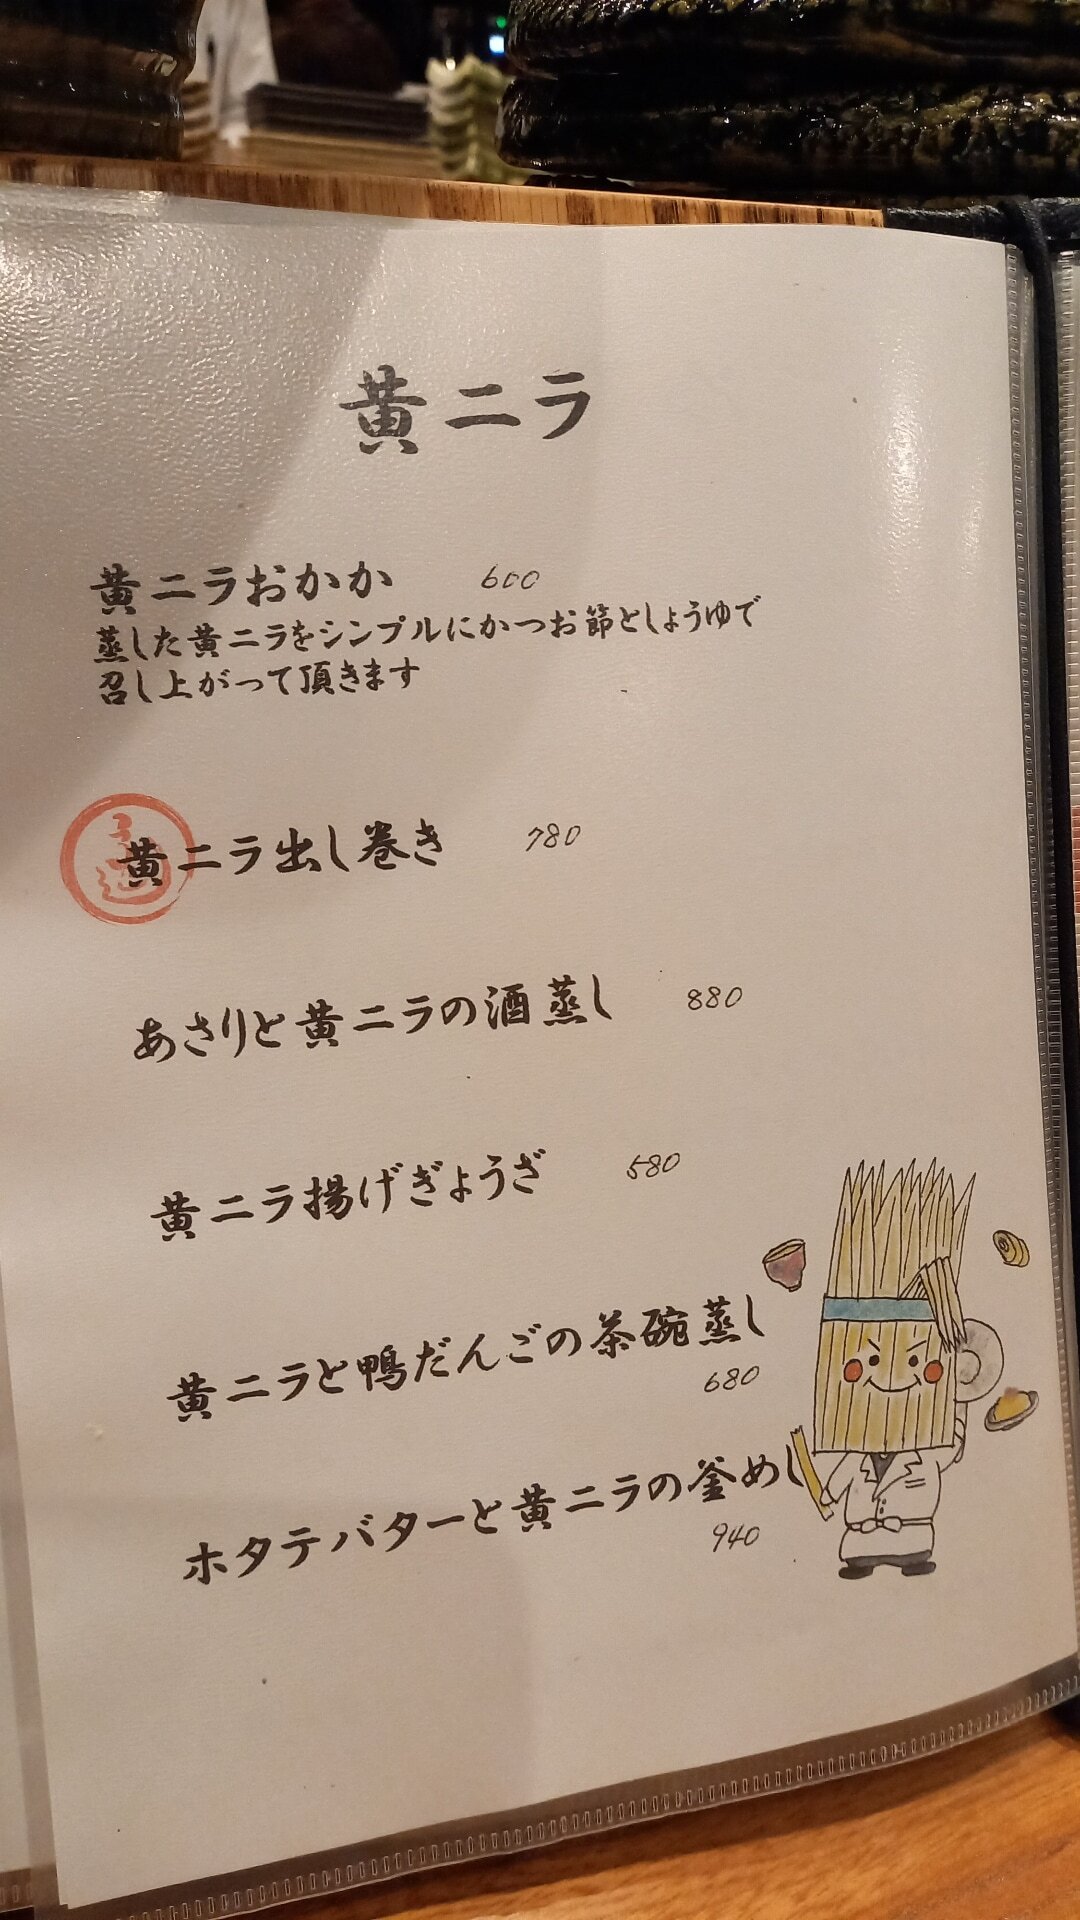 黄ニラ
黄ニラおかか 600
蒸した黄ニラをシンプルにかつお節としょうゆで
召し上がって頂きます
黄ニラ出し巻き 780
あさりと黄ニラの酒蒸し 880
黄ニラ揚げぎょうざ 580
黄ニラと鴨だんごの茶碗蒸し
680
ホタテバターと黄ニラの釜めし
940